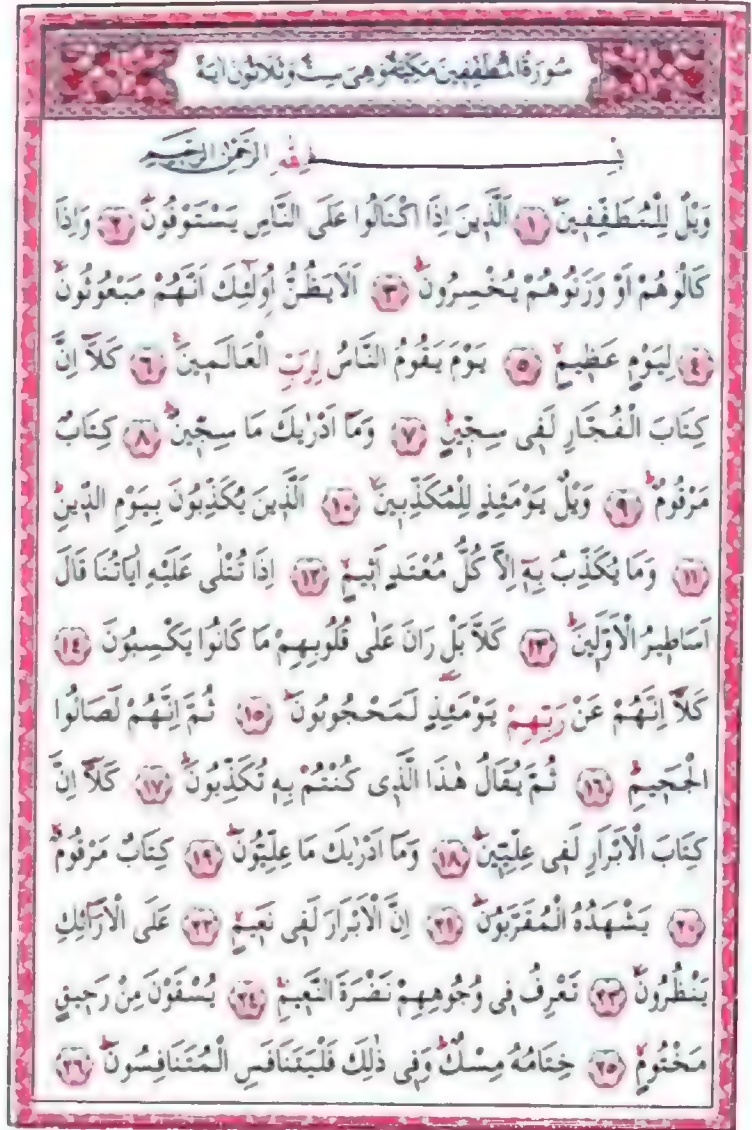 سُورَةُ الْمُطَفِّفِينَ مَكِّيَّةٌ وَهِيَ سِتٌّ وَثَلَاثُونَ اٰيَةً
بِسْمِ اللّٰهِ الرَّحْمٰنِ الرَّحِيمِ
وَيْلٌ لِلْمُطَفِّفِينَۙ ﴿١﴾ اَلَّذِينَ اِذَا اكْتَالُوا عَلَى النَّاسِ يَسْتَوْفُونَۘ ﴿٢﴾ وَاِذَا
كَالُوهُمْ اَوْ وَزَنُوهُمْ يُخْسِرُونَۜ ﴿٣﴾ اَلَا يَظُنُّ اُو۬لٰٓئِكَ اَنَّهُمْ مَبْعُوثُونَۙ
﴿٤﴾ لِيَوْمٍ عَظِيمٍۙ ﴿٥﴾ يَوْمَ يَقُومُ النَّاسُ لِرَبِّ الْعَالَمِينَۜ ﴿٦﴾ كَلَّٓا اِنَّ
كِتَابَ الْفُجَّارِ لَفِي سِجِّينٍۜ ﴿٧﴾ وَمَٓا اَدْرٰيكَ مَا سِجِّينٌۜ ﴿٨﴾ كِتَابٌ
مَرْقُومٌۜ ﴿٩﴾ وَيْلٌ يَوْمَئِذٍ لِلْمُكَذِّبِينَۙ ﴿١٠﴾ اَلَّذِينَ يُكَذِّبُونَ بِيَوْمِ الدِّينِۜ
﴿١١﴾ وَمَا يُكَذِّبُ بِهِٓ اِلَّا كُلُّ مُعْتَدٍ اَثِيمٍۙ ﴿١٢﴾ اِذَا تُتْلٰى عَلَيْهِ اٰيَاتُنَا قَالَ
اَسَاطِيرُ الْاَوَّلِينَۜ ﴿١٣﴾ كَلَّا بَلْ رَانَ عَلٰى قُلُوبِهِمْ مَا كَانُوا يَكْسِبُونَ ﴿١٤﴾
كَلَّٓا اِنَّهُمْ عَنْ رَبِّهِمْ يَوْمَئِذٍ لَمَحْجُوبُونَۜ ﴿١٥﴾ ثُمَّ اِنَّهُمْ لَصَالُوا
الْجَحِيمِۜ ﴿١٦﴾ ثُمَّ يُقَالُ هٰذَا الَّذِي كُنْتُمْ بِهِ تُكَذِّبُونَۜ ﴿١٧﴾ كَلَّٓا اِنَّ
كِتَابَ الْاَبْرَارِ لَفِي عِلِّيِّينَۜ ﴿١٨﴾ وَمَٓا اَدْرٰيكَ مَا عِلِّيُّونَۜ ﴿١٩﴾ كِتَابٌ مَرْقُومٌۙ
﴿٢٠﴾ يَشْهَدُهُ الْمُقَرَّبُونَۜ ﴿٢١﴾ اِنَّ الْاَبْرَارَ لَفِي نَعِيمٍۙ ﴿٢٢﴾ عَلَى الْاَرَٓائِكِ
يَنْظُرُونَۙ ﴿٢٣﴾ تَعْرِفُ فِي وُجُوهِهِمْ نَضْرَةَ النَّعِيمِۚ ﴿٢٤﴾ يُسْقَوْنَ مِنْ رَحِيقٍ
مَخْتُومٍۙ ﴿٢٥﴾ خِتَامُهُ مِسْكٌۜ وَفِي ذٰلِكَ فَلْيَتَنَافَسِ الْمُتَنَافِسُونَۜ ﴿٢٦﴾